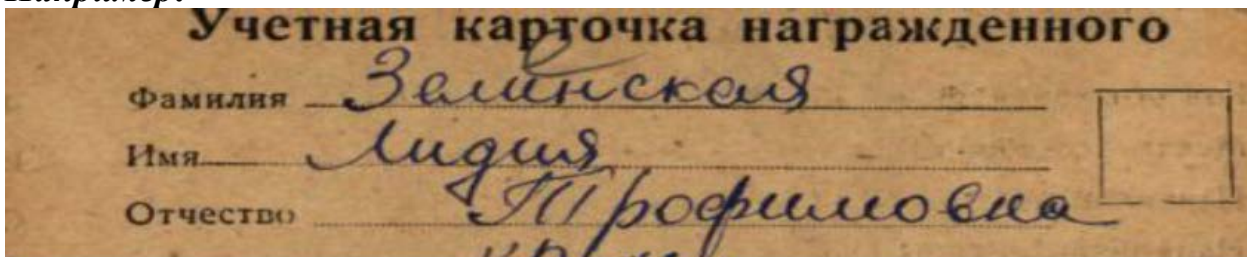 Например:
Учетная карточка награжденного
Фамилия Зелинская
Имя Лидия
Отчество Трофимовна